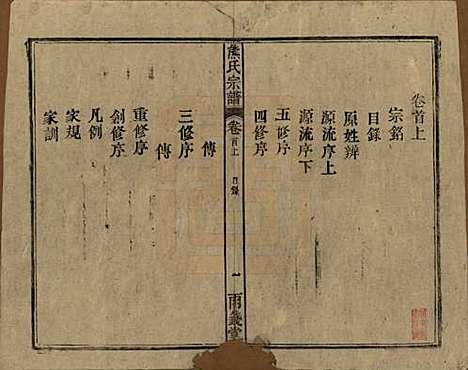 卷首上
宗銘
目錄
原姓辨
源流序上
源流序下
五修序
四修序
氏宗譜
卷首上
目錄
一
兩義堂
傳
三修序
傳
重修序
創修序
凡例
家規
家訓